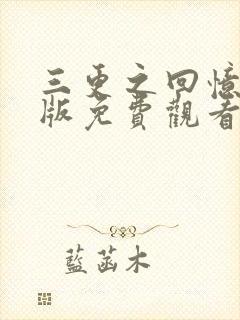 三更之回憶
版免費觀看
藍菡木